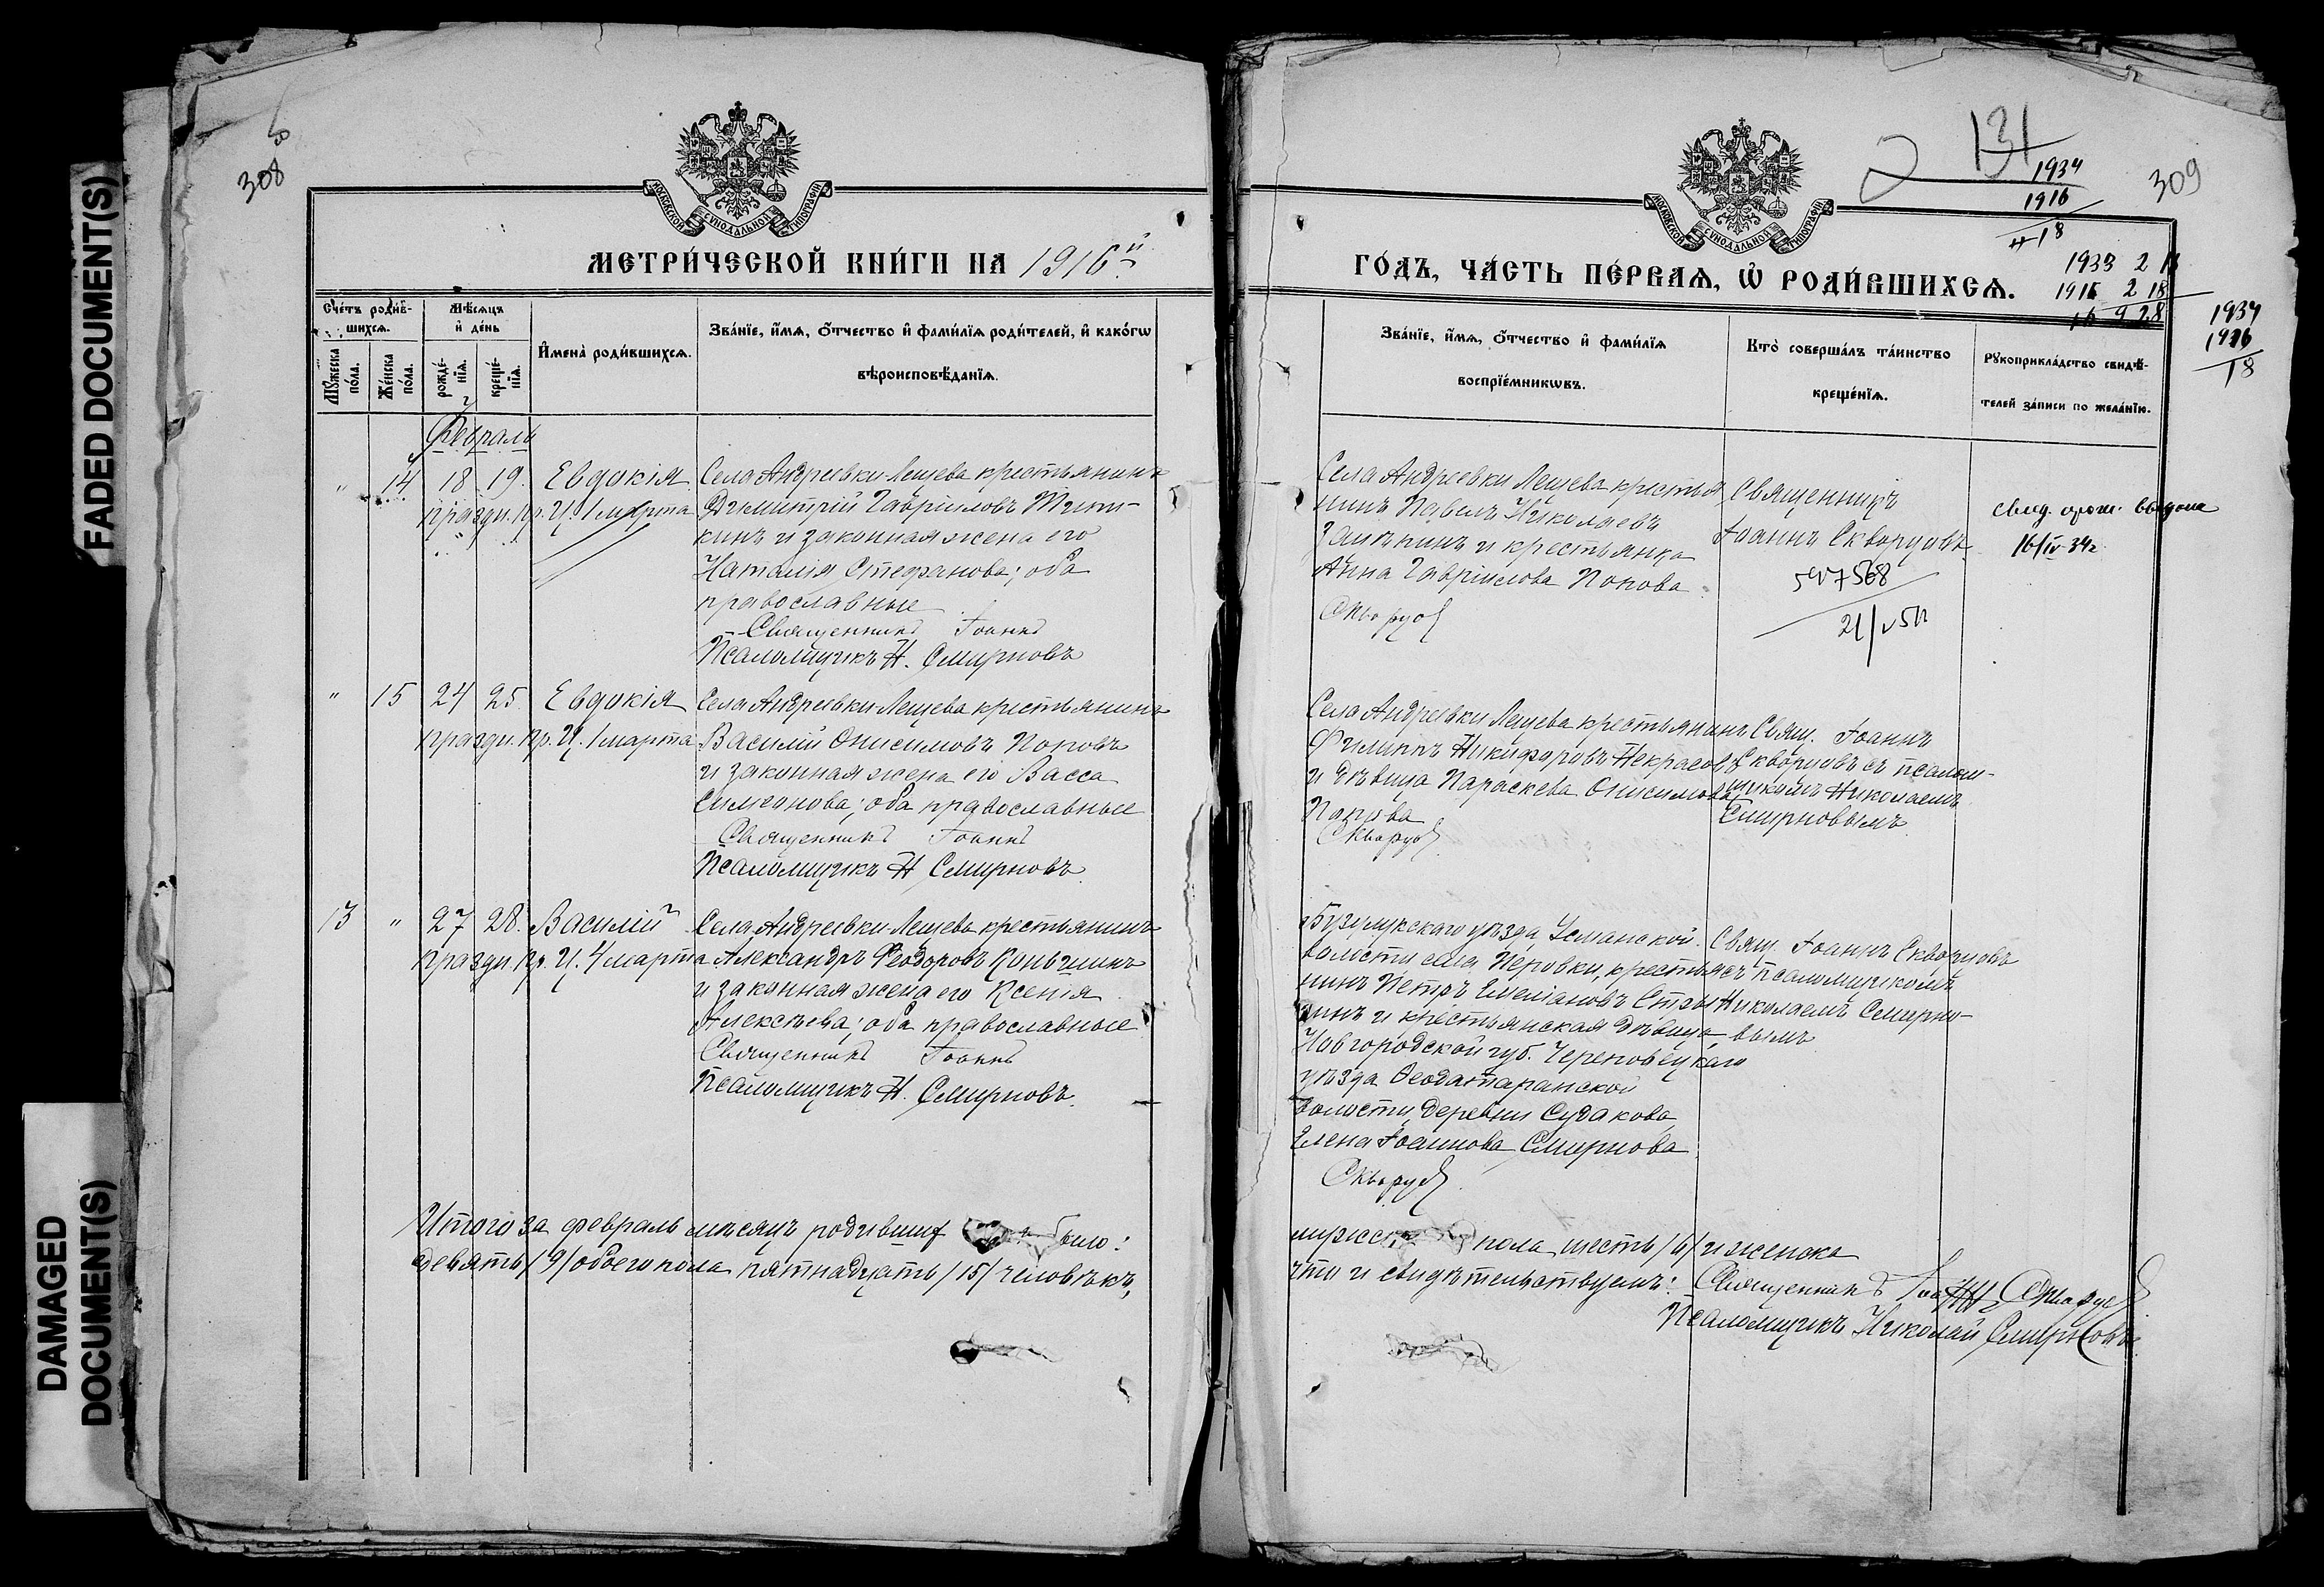 FADED DOCUMENT(S)
DAMAGED
DOCUMENT(S)
308
МОСКОВСКОЙ СѴНОДАЛЬНОЙ ТИПОГРАФІИ
МЕТРИ́ЧЕСКОЙ КНИ́ГИ НА 1916й
Сче́тъ роди́в-
шихсѧ.
Мѹ́жеска
по́ла.
Же́нска
по́ла.
Мѣ́сѧцъ
и҆ де́нь
рожде́-
нїѧ.
креще́-
нїѧ.
И҆мена̀ роди́вшихсѧ.
Зва́нїе, и҆́мѧ, ѻ҆́тчество и҆ фами́лїѧ роди́телей, и҆ како́гѡ
вѣроисповѣ́данїѧ.
Февраль
" 14 18 19. Евдокія
праздн. пр. Ц. 1 марта
Села Андреевки-Лещева крестьянинъ
Димитрій Гавріиловъ
кинъ и законная жена его
Наталія Стефанова; оба
православные
Священникъ Іоаннъ
Псаломщикъ Н. Смирновъ
" 15 24 25. Евдокія
праздн. пр. Ц. 1 марта
Села Андреевки Лещева крестьянинъ
Василій Онисимовъ Поповъ
и законная жена его Васса
Симеонова; оба православные
Священникъ Іоаннъ
Псаломщикъ Н Смирновъ
13 " 27 28. Василій
праздн. пр. Ц. 4 марта
Села Андреевки-Лещева крестьянинъ
Александръ Феодоровъ
и законная жена его Ксенія
Алексѣева; оба православные
Священникъ Іоаннъ
Псаломщикъ Н. Смирновъ.
Итого за февраль мѣсяцъ родивших было:
девять /9/ обоего пола пятнадцать /15/ человѣкъ,
131
309
1934
1916
18
1933 2
1916 2 18
1934
1916
18
МОСКОВСКОЙ СѴНОДАЛЬНОЙ ТИПОГРАФІИ
ГО́ДЪ, ЧА́СТЬ ПЕ́РВАѦ, Ѡ҆ РОДИ́ВШИХСѦ.
Зва́нїе, и҆́мѧ, ѻ҆́тчество и҆ фами́лїѧ
воспрїе́мникѡвъ.
Кто̀ соверша́лъ та́инство
креще́нїѧ.
Рѹкоприкла́дство свидѣ́-
телей за́писи по жела́нїю.
Села Андреевки Лещева крестья
нинъ Павелъ Николаевъ
и крестьянка
Анна Гавріилова Попова
Скворцов
Священникъ
Іоаннъ Скворцовъ.
21/V 5
16/IV-34г
Села Андреевки Лещева крестьянинъ
Филиппъ Никифоровъ Некрасовъ
и дѣвица Параскева Онисимова
Попова
Скворцов
Свящ. Іоаннъ
Скворцовъ съ псалом-
щикомъ Николаемъ
Смирновымъ
Бузулукскаго уѣзда Усманской
волости села Перовки, крестья
нинъ Петръ Емеліановъ
и крестьянская дѣвица
Новгородской губ. Череповецкаго
уѣзда
волости, деревни Судакова
Елена Іоаннова Смирнова
Скворцов
Свящ. Іоаннъ Скворцовъ
съ псаломщикомъ
Николаемъ Смирно-
вымъ
мужск пола шесть /6/ и женска
что и свидѣтельствуемъ: Священникъ Іоаннъ Скворцов
Псаломщикъ Николай Смирновъ.